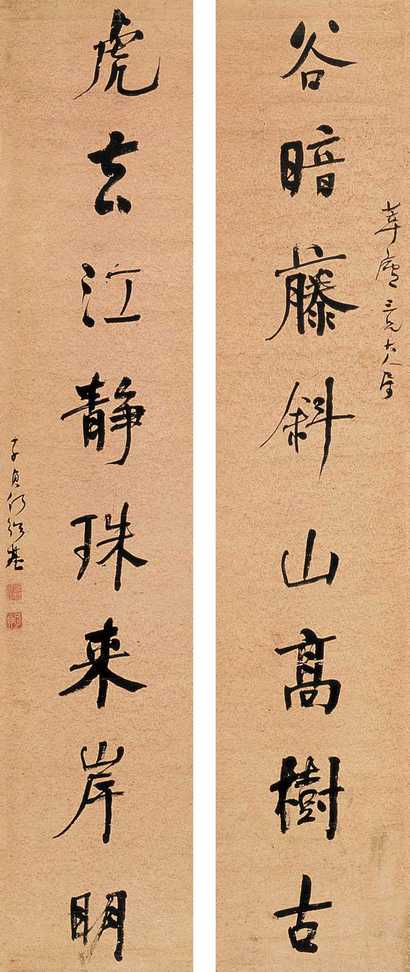 谷暗藤斜山高樹古
三兄大人屬
虎去江静珠来岸明
子貞何紹基